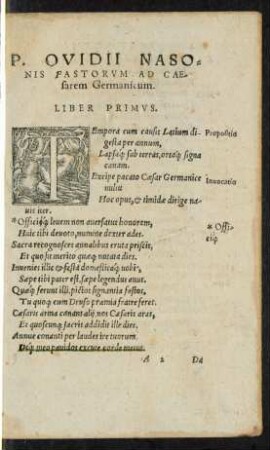 P. OVIDII NASO-
NIS FASTORVM AD CAE-
sarem Germanicum.
LIBER PRIMVS.
TEmpora cum causis Latium di- Propositio
gesta per annum,
Lapsaq́; sub terras, ortaq́; signa
canam.
Excipe pacato Cæsar Germanice Inuocatio
uultu
Hoc opus, & timidæ dirige na-
uis iter.
*Officióq́; leuem non auersatus honorem, * Offi-
Huic tibi deuoto, numine dexter ades. cióq́;
Sacra recognosces annalibus eruta priscis,
Et quo sit merito quæq; notata dies.
Inuenies illic & festa domestica uobis,
Sæpe tibi pater est, sæpe legendus auus.
Quæq́; ferunt illi, pictos signantia fastos,
Tu quoq; cum Druso præmia fratre feres.
Cæsaris arma canant alij: nos Cæsaris aras,
Et quoscunq; sacris addidit ille dies.
Annue conanti per laudes ire tuorum.
Deq́; meo pauidos excute corde metus.
A 2 Da